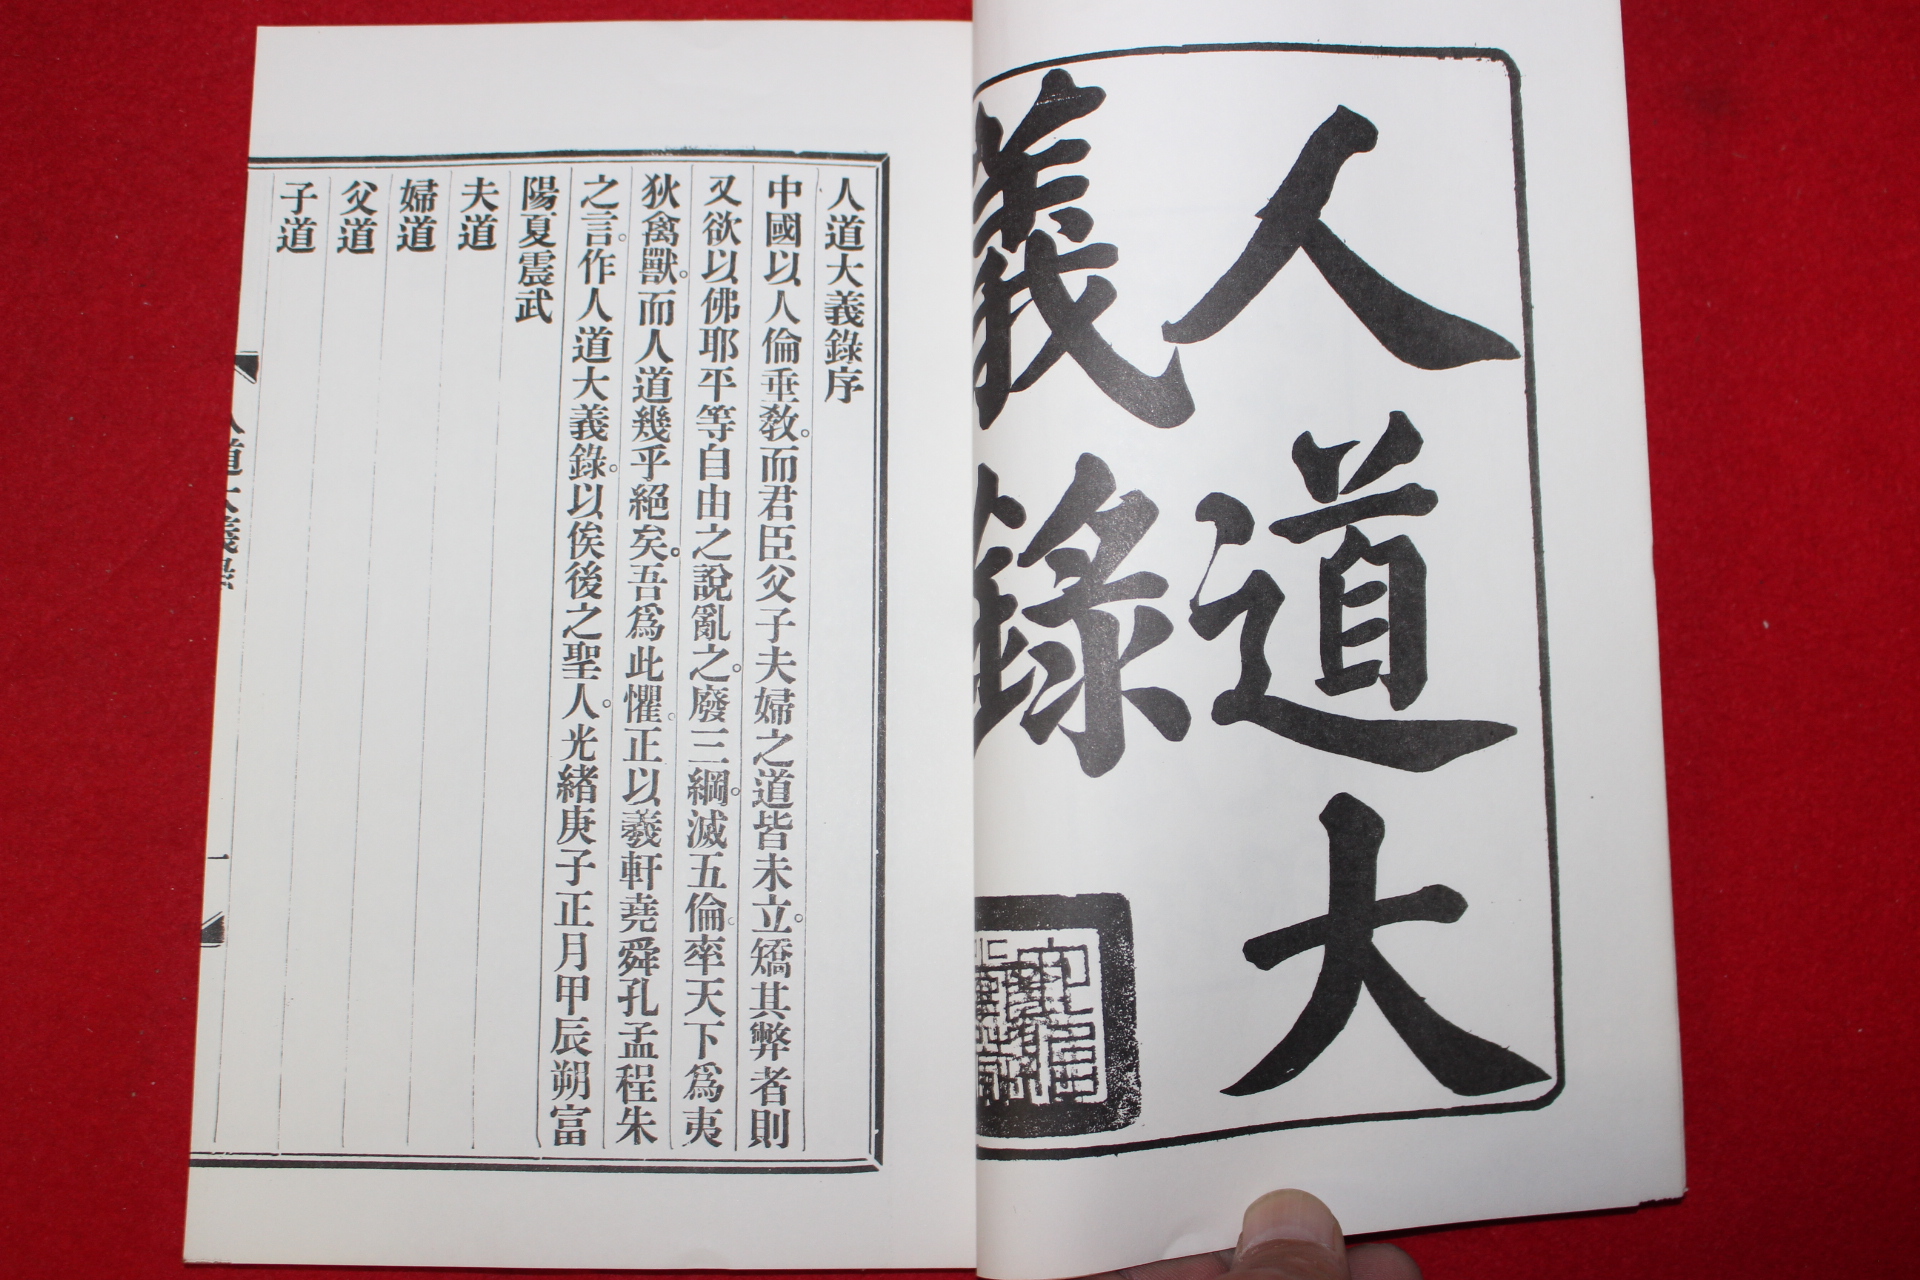 人道大
義錄
人道大義錄序
中國以人倫垂教。而君臣父子夫婦之道皆未立。矯其弊者則
又欲以佛耶平等自由之說亂之。廢三綱。滅五倫。率天下爲夷
狄禽獸。而人道幾乎絕矣。吾爲此懼。正以羲軒堯舜孔孟程朱
之言。作人道大義錄。以俟後之聖人。光緒庚子正月甲辰朔富
陽夏震武
夫道
婦道
父道
子道
人道大義錄
一